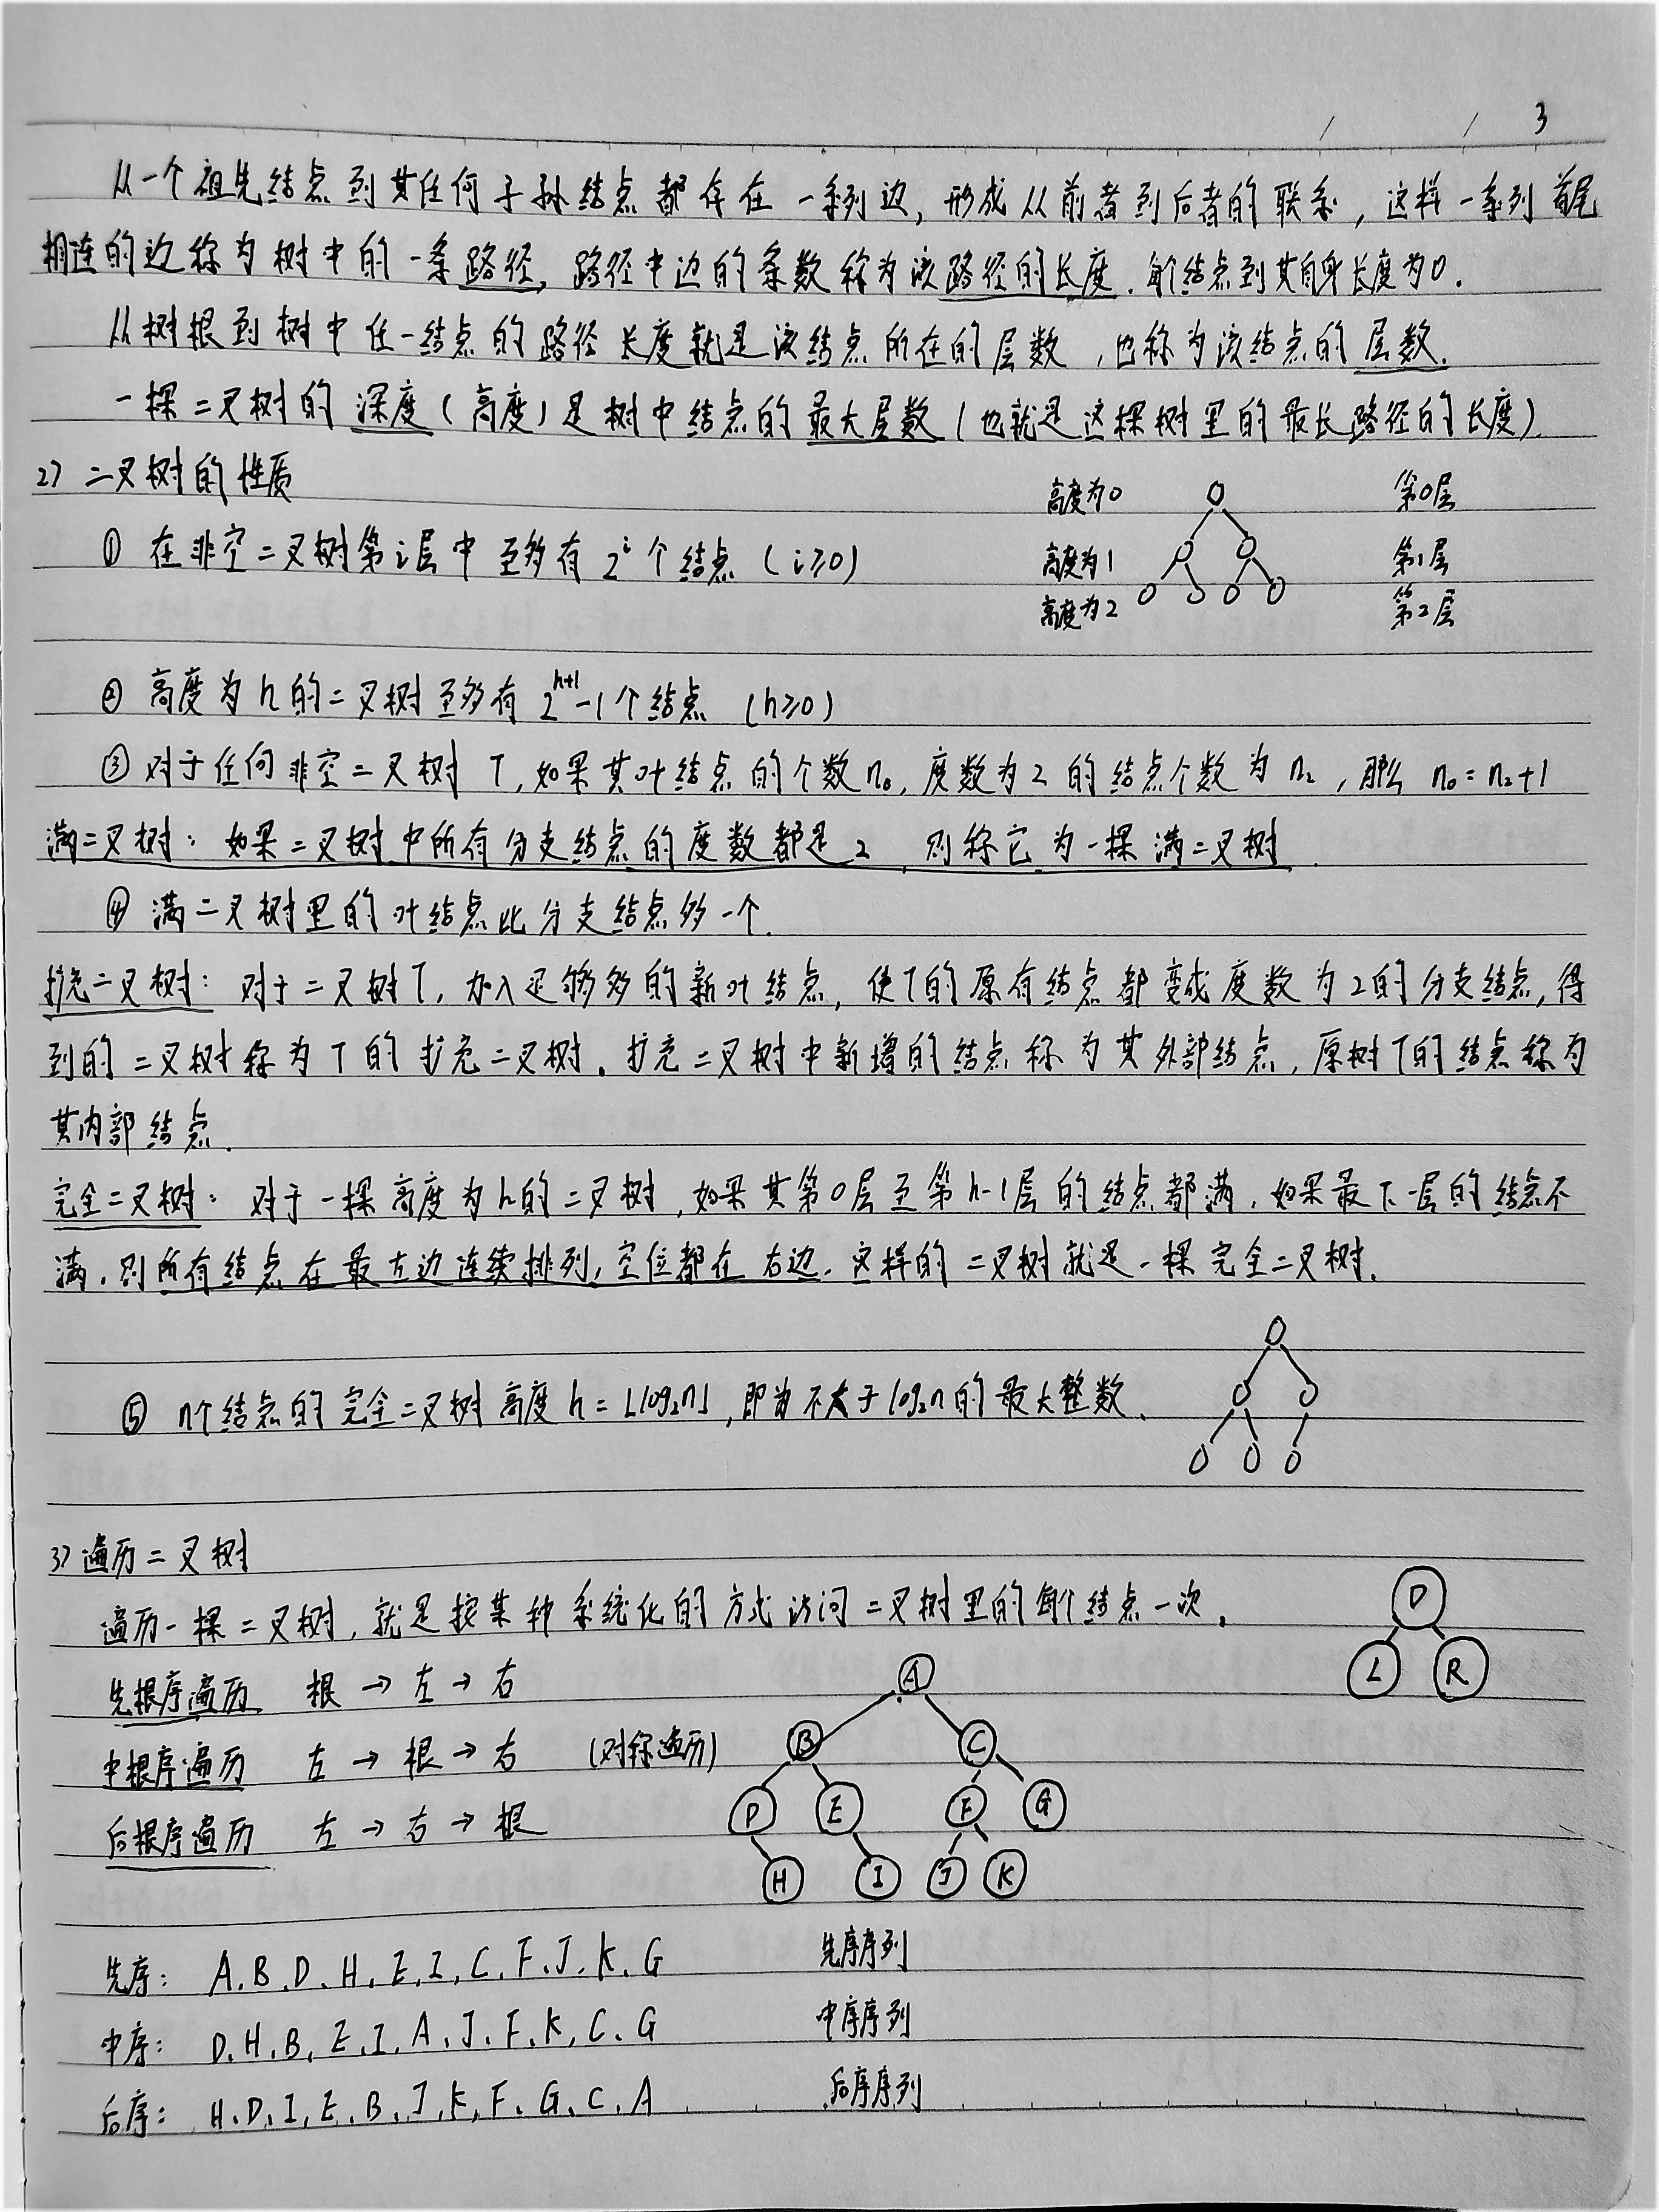 3
从一个祖先结点到其任何子孙结点都存在一系列边,形成从前者到后者的联系,这样一系列首尾
相连的边称为树中的一条路径,路径中边的条数称为该路径的长度.每个结点到其自身长度为0.
从树根到树中任一结点的路径长度就是该结点所在的层数,也称为该结点的层数.
一棵二叉树的深度(高度)是树中结点的最大层数(也就是这棵树里的最长路径的长度).
2) 二叉树的性质
高度为0 第0层
① 在非空二叉树第i层中至多有 2^i 个结点 (i≥0)
高度为1 第1层
高度为2 第2层
② 高度为h的二叉树至多有 2^{h+1}-1个结点 (h≥0)
③ 对于任何非空二叉树T,如果其叶结点的个数n₀,度数为2的结点个数为n₂,那么 n₀=n₂+1
满二叉树:如果二叉树中所有分支结点的度数都是2,则称它为一棵满二叉树.
④ 满二叉树里的叶结点比分支结点多一个.
扩充二叉树:对于二叉树T,加入足够多的新叶结点,使T的原有结点都变成度数为2的分支结点,得
到的二叉树称为T的扩充二叉树.扩充二叉树中新增的结点称为其外部结点,原树T的结点称为
其内部结点.
完全二叉树:对于一棵高度为h的二叉树,如果其第0层至第h-1层的结点都满.如果最下一层的结点不
满.则所有结点在最左边连续排列,空位都在右边.这样的二叉树就是一棵完全二叉树.
⑤ n个结点的完全二叉树高度h=⌊log₂n⌋,即为不大于log₂n的最大整数.
3) 遍历二叉树
遍历一棵二叉树,就是按某种系统化的方式访问二叉树里的每个结点一次.
D
L R
先根序遍历 根→左→右
A
中根序遍历 左→根→右 (对称遍历)
B C
后根序遍历 左→右→根
D E F G
H I J K
先序: A.B.D.H.E.I.C.F.J.K.G 先序序列
中序: D.H.B.E.I.A.J.F.K.C.G 中序序列
后序: H.D.I.E.B.J.K.F.G.C.A 后序序列